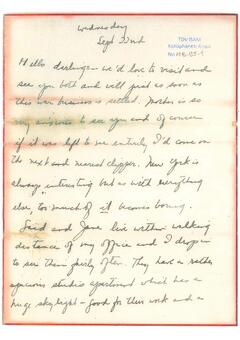 Wednesday
Sept 22nd
TOROS
Kütüphanesi Arşivi
No
Hello darling - we'd love to visit and
see you both and will just as soon as
this war business is settled. Mother is so
very anxious to see you and of course
if it was left to me entirely, I'd come on
the next and nearest clipper. New York is
always interesting but as with everything
else too much of it becomes boring.
Said and Jane live within walking
distance of my office and I drop in
to see them fairly often. They have a rather
spacious studio apartment which has a
huge skylight - good for their work and a